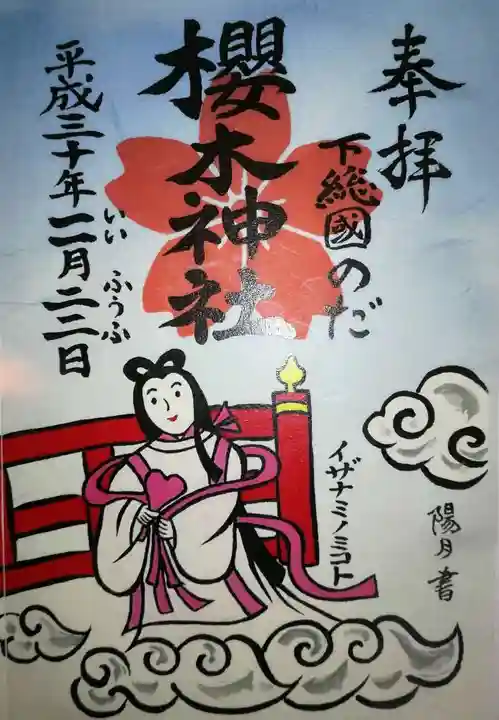 奉拝
下総國のだ
櫻木神社
平成三十年一一月二二日
いい ふうふ
イザナミノミコト
陽月書